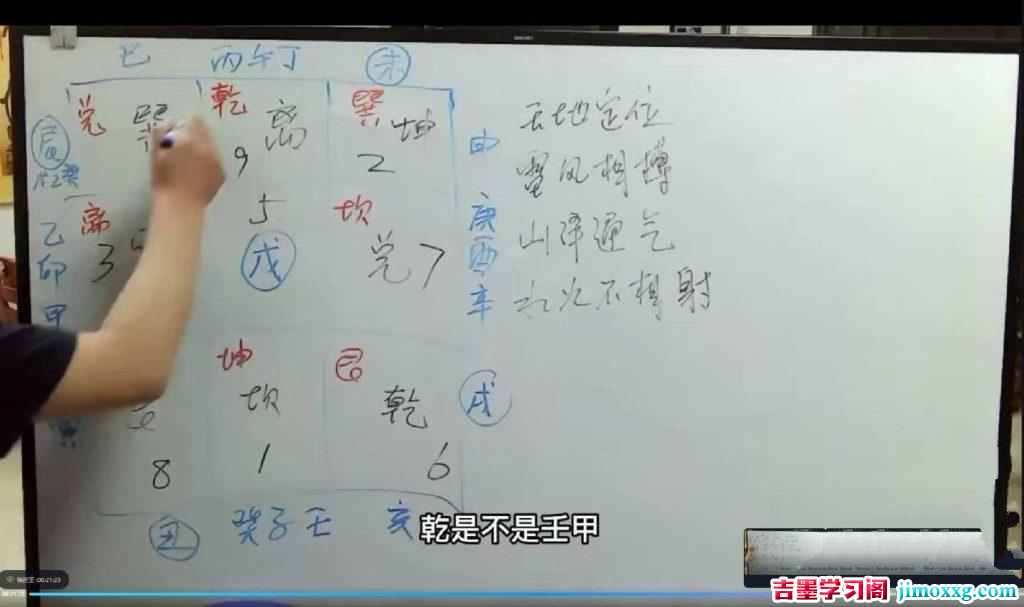 巳 丙午丁 未
兑 巽 乾 离 巽 坤
辰 9 2 申
天地定位
雷风相搏
离 5 坎 庚
乙 3 戊 兑 7 酉
山泽通气
卯 辛
水火不相射
甲
坤 艮
坎 乾 戌
8 1 6
丑 癸子壬 亥
乾是不是壬甲
快进至:00:21:23
00:21:23
吉墨学习阁 jimoxxg.com